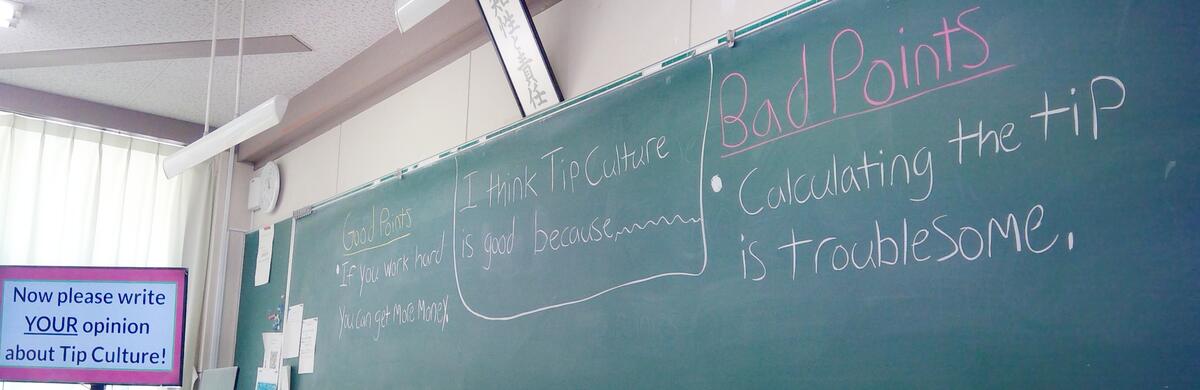 Now please write
YOUR opinion
about Tip Culture!
Good Points
• If you work hard
You can get More Money.
I think Tip Culture
is good because
Bad Points
• Calculating the tip
is troublesome.
知性と責任